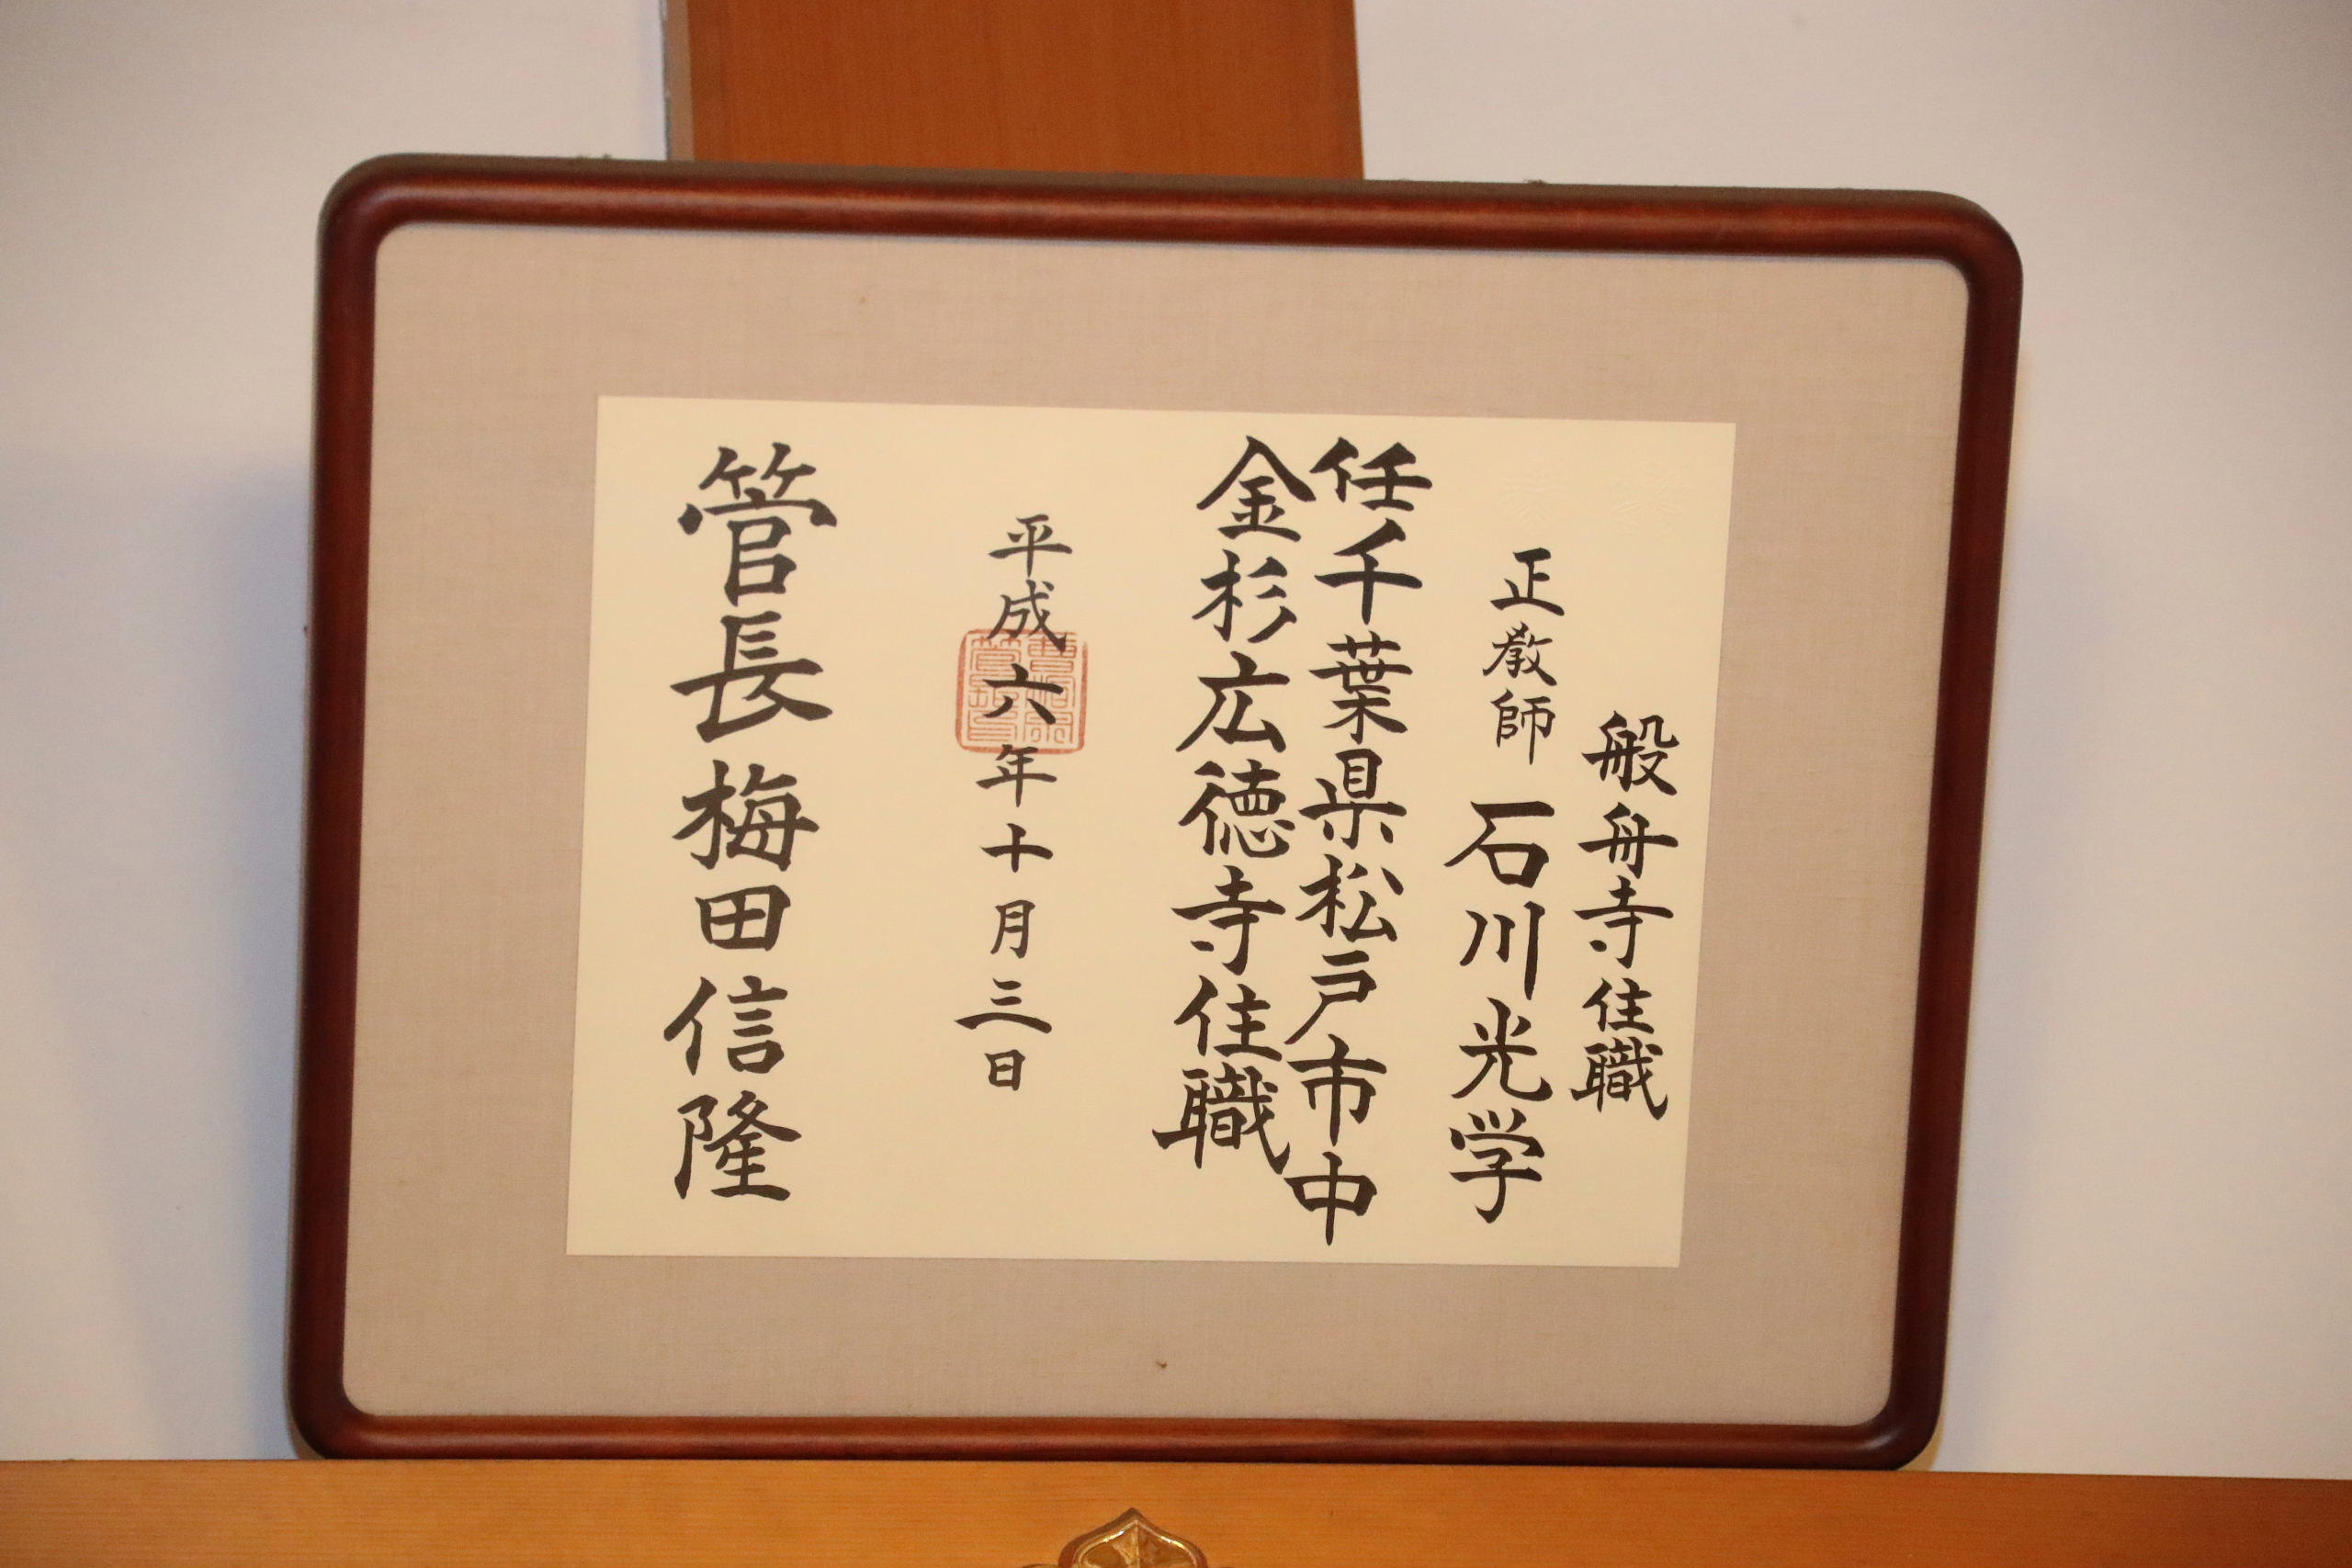 般舟寺住職
正教師 石川光学
任千葉県松戸市中
金杉広徳寺住職
平成六年十月三日
管長梅田信隆